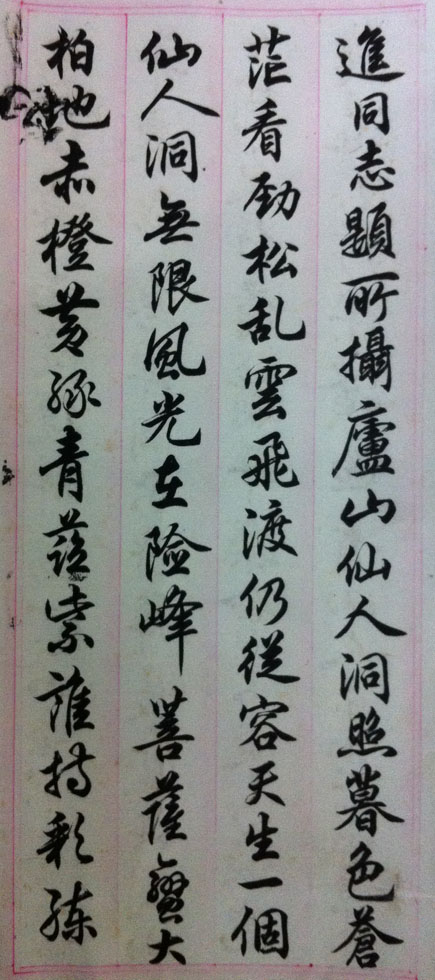 進同志題所攝廬山仙人洞照暮色蒼
茫看勁松乱雲飛渡仍從容天生一個
仙人洞無限風光在险峰 菩薩蠻大
柏地赤橙黄緑青蓝紫誰持彩练